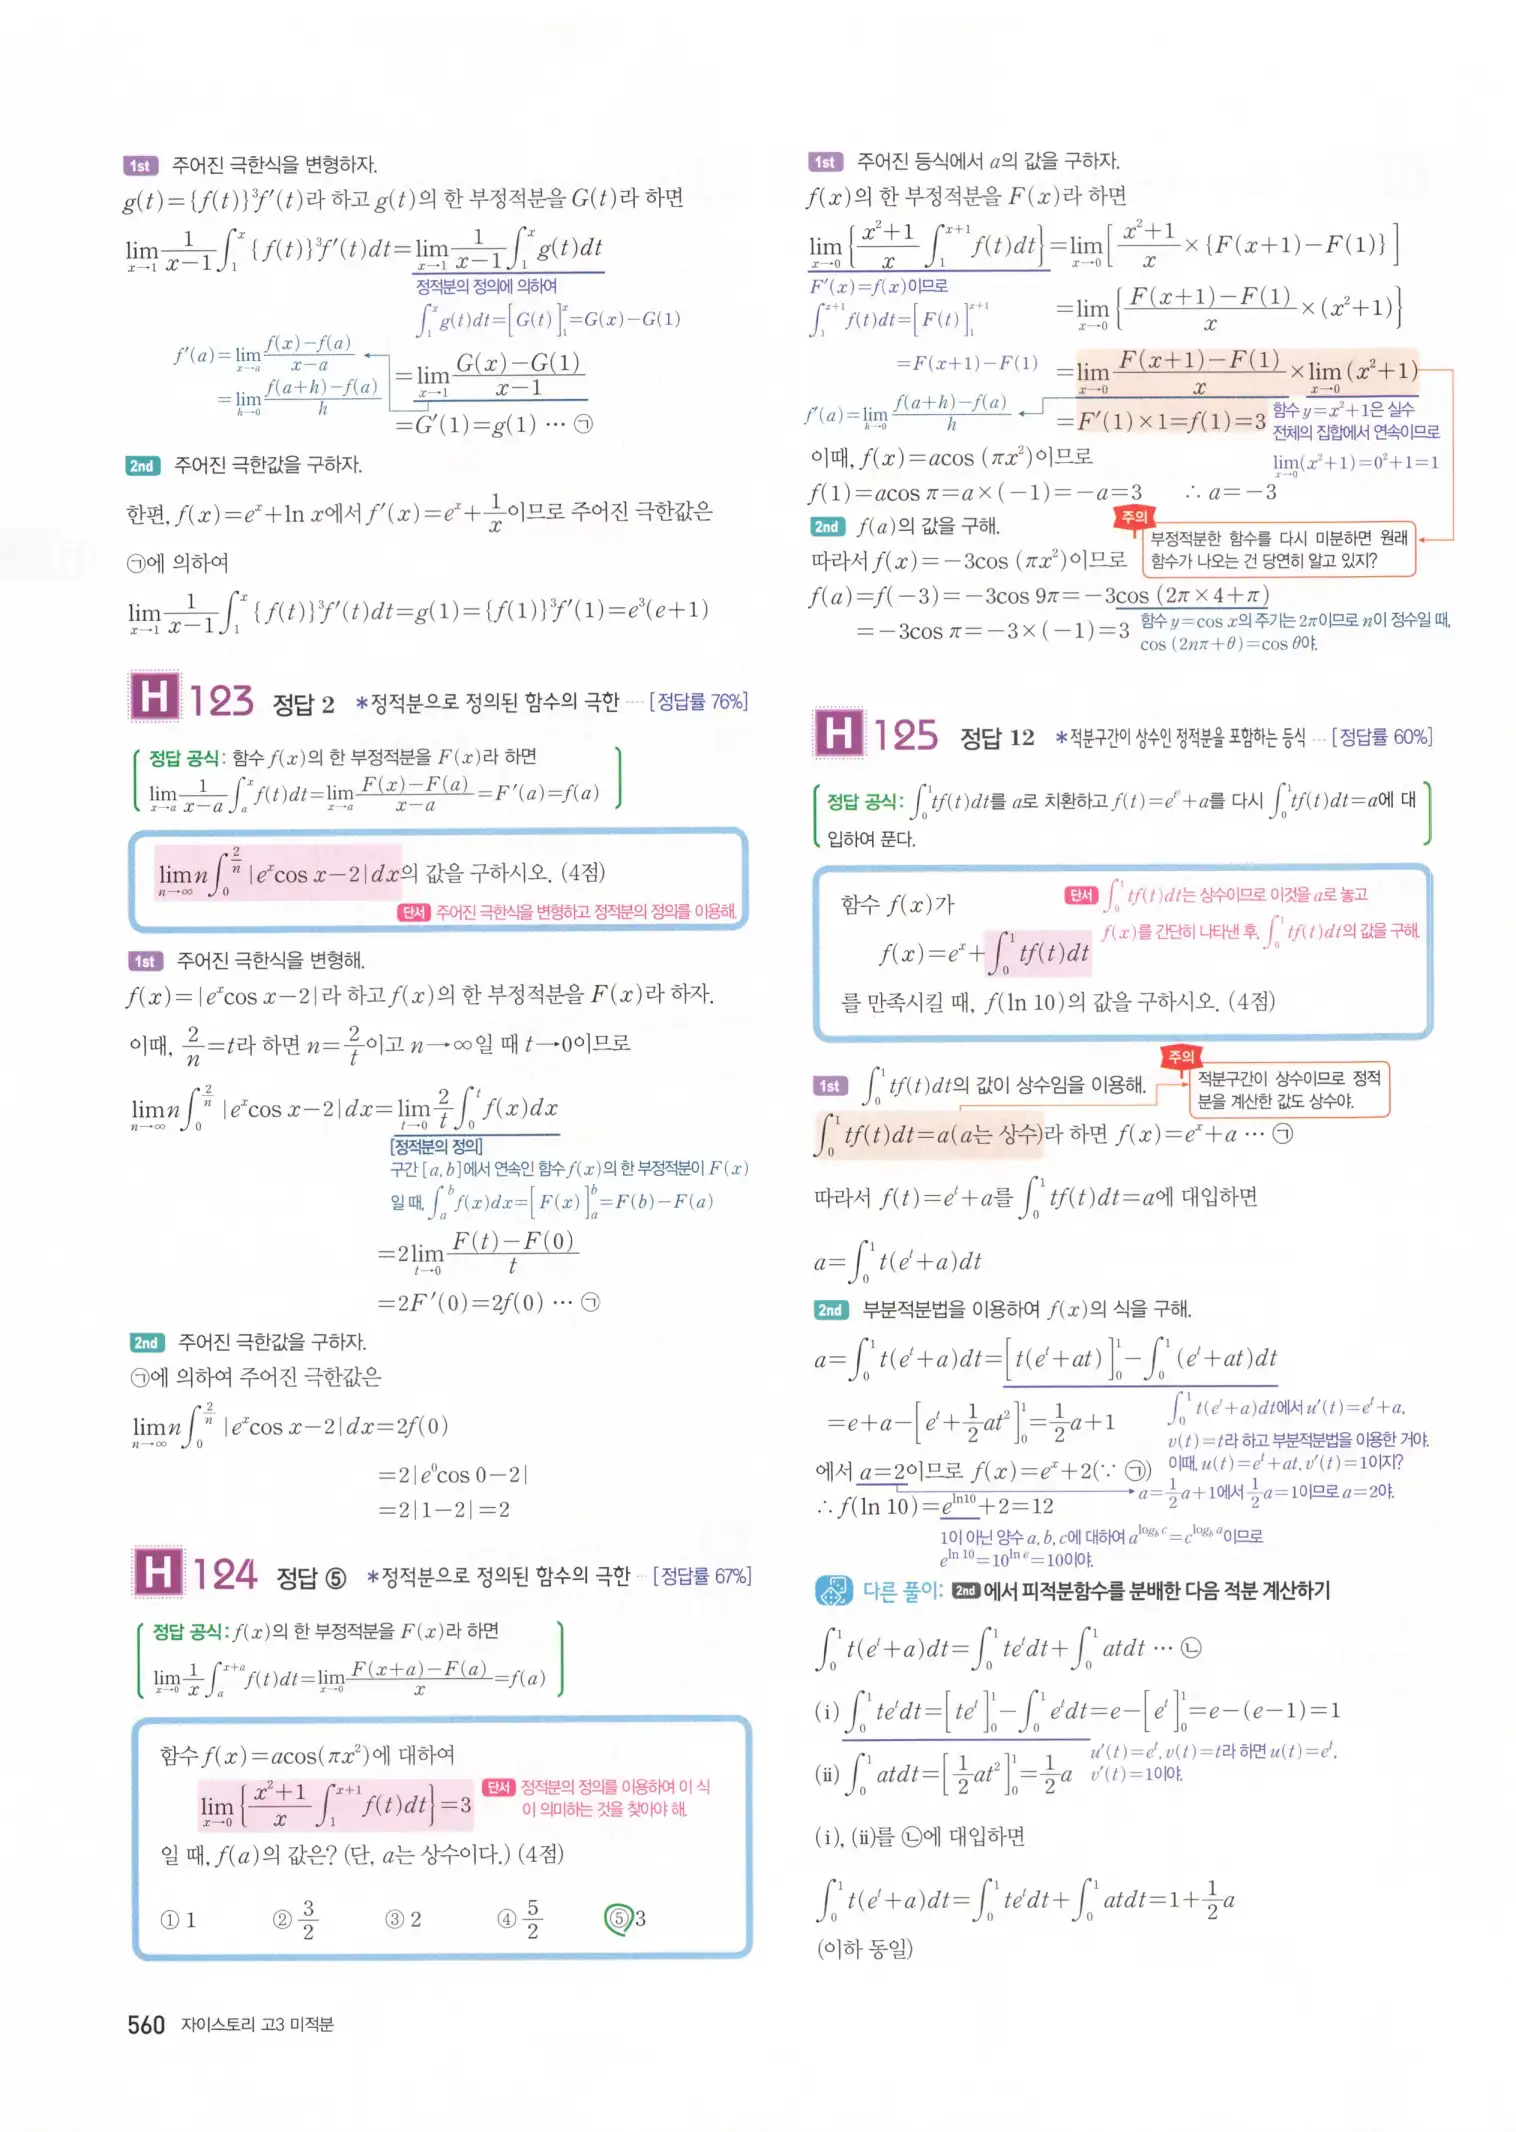 1st 주어진 극한식을 변형하자.
g(t)={f(t)}³f′(t)라 하고 g(t)의 한 부정적분을 G(t)라 하면
lim_{x→1} 1/(x−1) ∫₁ˣ {f(t)}³f′(t)dt=lim_{x→1} 1/(x−1) ∫₁ˣ g(t)dt
정적분의 정의에 의하여
∫₁ˣ g(t)dt=[G(t)]₁ˣ=G(x)−G(1)
f′(a)=lim_{x→a} (f(x)−f(a))/(x−a)
=lim_{h→0} (f(a+h)−f(a))/h
=lim_{x→1} (G(x)−G(1))/(x−1)
=G′(1)=g(1) ⋯ ㉠
2nd 주어진 극한값을 구하자.
한편, f(x)=eˣ+ln x에서 f′(x)=eˣ+1/x이므로 주어진 극한값은
㉠에 의하여
lim_{x→1} 1/(x−1) ∫₁ˣ {f(t)}³f′(t)dt=g(1)={f(1)}³f′(1)=e³(e+1)
H 123 정답 2 *정적분으로 정의된 함수의 극한 ···· [정답률 76%]
정답 공식: 함수 f(x)의 한 부정적분을 F(x)라 하면
lim_{x→a} 1/(x−a) ∫ₐˣ f(t)dt=lim_{x→a} (F(x)−F(a))/(x−a)=F′(a)=f(a)
lim_{n→∞} n∫₀^{2/n} |eˣcos x−2|dx의 값을 구하시오. (4점)
단서 주어진 극한식을 변형하고 정적분의 정의를 이용해.
1st 주어진 극한식을 변형해.
f(x)=|eˣcos x−2|라 하고 f(x)의 한 부정적분을 F(x)라 하자.
이때, 2/n=t라 하면 n=2/t이고 n→∞일 때 t→0이므로
lim_{n→∞} n∫₀^{2/n} |eˣcos x−2|dx=lim_{t→0} 2/t ∫₀ᵗ f(x)dx
[정적분의 정의]
구간 [a, b]에서 연속인 함수 f(x)의 한 부정적분이 F(x)
일 때, ∫ₐᵇ f(x)dx=[F(x)]ₐᵇ=F(b)−F(a)
=2lim_{t→0} (F(t)−F(0))/t
=2F′(0)=2f(0) ⋯ ㉠
2nd 주어진 극한값을 구하자.
㉠에 의하여 주어진 극한값은
lim_{n→∞} n∫₀^{2/n} |eˣcos x−2|dx=2f(0)
=2|e⁰cos 0−2|
=2|1−2|=2
H 124 정답 ⑤ *정적분으로 정의된 함수의 극한 ·· [정답률 67%]
정답 공식: f(x)의 한 부정적분을 F(x)라 하면
lim_{x→0} 1/x ∫ₐ^{x+a} f(t)dt=lim_{x→0} (F(x+a)−F(a))/x=f(a)
함수 f(x)=acos(πx²)에 대하여
lim_{x→0} {(x²+1)/x ∫₁^{x+1} f(t)dt}=3
단서 정적분의 정의를 이용하여 이 식
이 의미하는 것을 찾아야 해.
일 때, f(a)의 값은? (단, a는 상수이다.) (4점)
① 1 ② 3/2 ③ 2 ④ 5/2 ⑤ 3
560 자이스토리 고3 미적분
1st 주어진 등식에서 a의 값을 구하자.
f(x)의 한 부정적분을 F(x)라 하면
lim_{x→0} {(x²+1)/x ∫₁^{x+1} f(t)dt}=lim_{x→0} [(x²+1)/x×{F(x+1)−F(1)}]
F′(x)=f(x)이므로
∫₁^{x+1} f(t)dt=[F(t)]₁^{x+1}
=F(x+1)−F(1)
=lim_{x→0} {(F(x+1)−F(1))/x×(x²+1)}
=lim_{x→0} (F(x+1)−F(1))/x×lim_{x→0} (x²+1)
f′(a)=lim_{h→0} (f(a+h)−f(a))/h
=F′(1)×1=f(1)=3
함수 y=x²+1은 실수
전체의 집합에서 연속이므로
lim_{x→0}(x²+1)=0²+1=1
이때, f(x)=acos (πx²)이므로
f(1)=acos π=a×(−1)=−a=3 ∴ a=−3
2nd f(a)의 값을 구해.
주의
부정적분한 함수를 다시 미분하면 원래
함수가 나오는 건 당연히 알고 있지?
따라서 f(x)=−3cos (πx²)이므로
f(a)=f(−3)=−3cos 9π=−3cos (2π×4+π)
=−3cos π=−3×(−1)=3
함수 y=cos x의 주기는 2π이므로 n이 정수일 때,
cos (2nπ+θ)=cos θ야.
H 125 정답 12 *적분구간이 상수인 정적분을 포함하는 등식 ··· [정답률 60%]
정답 공식: ∫₀¹tf(t)dt를 a로 치환하고 f(t)=eᵗ+a를 다시 ∫₀¹tf(t)dt=a에 대
입하여 푼다.
함수 f(x)가
단서 ∫₀¹ tf(t)dt는 상수이므로 이것을 a로 놓고
f(x)를 간단히 나타낸 후, ∫₀¹ tf(t)dt의 값을 구해.
f(x)=eˣ+∫₀¹ tf(t)dt
를 만족시킬 때, f(ln 10)의 값을 구하시오. (4점)
1st ∫₀¹ tf(t)dt의 값이 상수임을 이용해.
주의
적분구간이 상수이므로 정적
분을 계산한 값도 상수야.
∫₀¹ tf(t)dt=a(a는 상수)라 하면 f(x)=eˣ+a ⋯ ㉠
따라서 f(t)=eᵗ+a를 ∫₀¹ tf(t)dt=a에 대입하면
a=∫₀¹ t(eᵗ+a)dt
2nd 부분적분법을 이용하여 f(x)의 식을 구해.
a=∫₀¹ t(eᵗ+a)dt=[t(eᵗ+at)]₀¹−∫₀¹ (eᵗ+at)dt
=e+a−[eᵗ+1/2at²]₀¹=1/2a+1
∫₀¹ t(eᵗ+a)dt에서 u′(t)=eᵗ+a,
v(t)=t라 하고 부분적분법을 이용한 거야.
이때, u(t)=eᵗ+at, v′(t)=1이지?
에서 a=2이므로 f(x)=eˣ+2(∵ ㉠)
a=1/2a+1에서 1/2a=1이므로 a=2야.
∴ f(ln 10)=e^{ln10}+2=12
1이 아닌 양수 a, b, c에 대하여 a^{log_b c}=c^{log_b a}이므로
e^{ln 10}=10^{ln e}=10이야.
다른 풀이: 2nd에서 피적분함수를 분배한 다음 적분 계산하기
∫₀¹ t(eᵗ+a)dt=∫₀¹ teᵗdt+∫₀¹ atdt ⋯ ㉡
(i) ∫₀¹ teᵗdt=[teᵗ]₀¹−∫₀¹ eᵗdt=e−[eᵗ]₀¹=e−(e−1)=1
u′(t)=eᵗ, v(t)=t라 하면 u(t)=eᵗ,
v′(t)=1이야.
(ii) ∫₀¹ atdt=[1/2at²]₀¹=1/2a
(i), (ii)를 ㉡에 대입하면
∫₀¹ t(eᵗ+a)dt=∫₀¹ teᵗdt+∫₀¹ atdt=1+1/2a
(이하 동일)